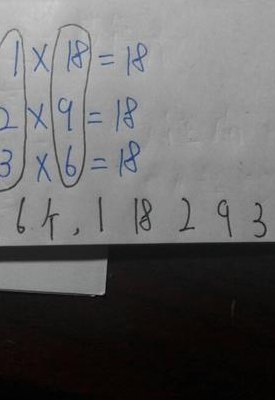 1 × 18 = 18
2 × 9 = 18
3 × 6 = 18
6个, 1 18 2 9 3